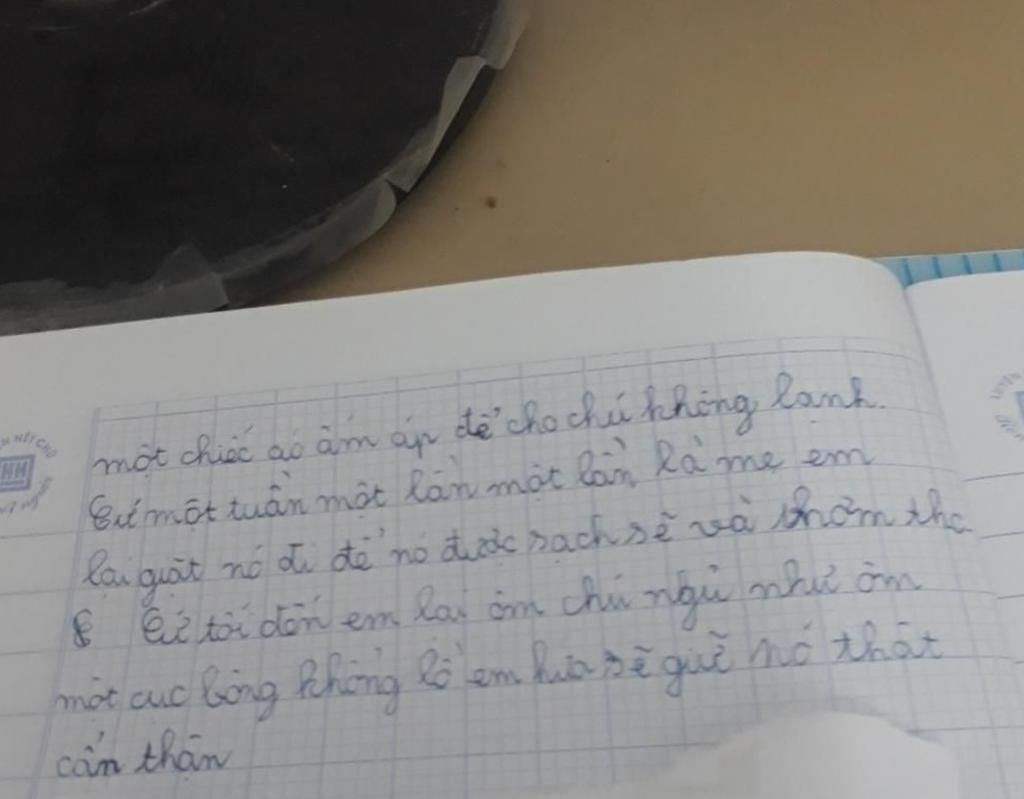 một chiếc áo ấm áp để cho chú không lạnh.
Cứ một tuần một lần một lần là mẹ em
lại giặt nó đi để nó được sạch sẽ và thơm tho
Cứ tối đến em lại ôm chú ngủ như ôm
một cục bông khổng lồ em hứa sẽ giữ nó thật
cẩn thận
HH